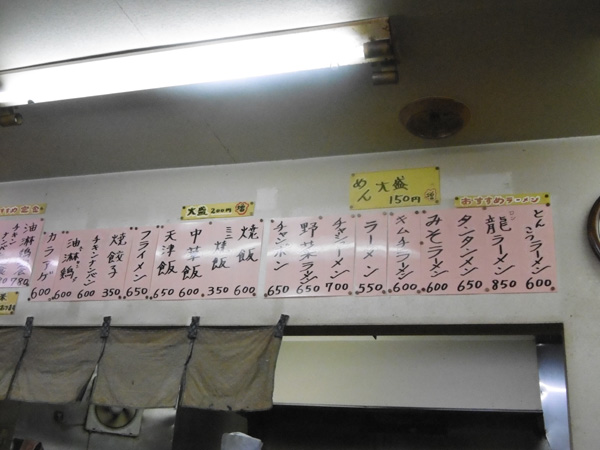 めん 大盛
150円 増
おすすめラーメン
とんこつラーメン 600
龍ラーメン 850
タンタンメン 650
みそラーメン 600
キムチラーメン 600
ラーメン 550
チャーシューメン 700
野菜ラーメン 650
チャンポン 650
大盛 200円 増
焼飯 600
ミニ焼飯 350
中華飯 600
天津飯 650
フライメン 650
焼餃子 350
チキンナンバン 600
油淋鶏 600
カラアゲ 600
定食
油淋鶏
780